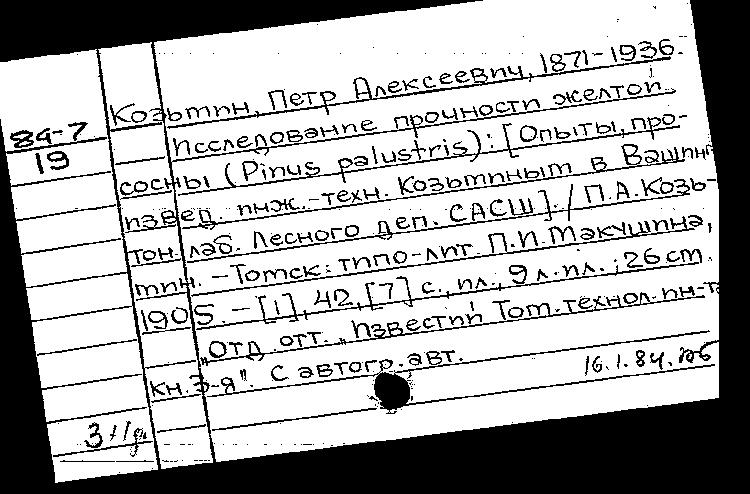 Козьмин, Петр Алексеевич, 1871-1936.
84-7
19
Исследование прочности желтой
сосны (Pinus palustris): [Опыты, про-
извед. инж.-техн. Козьминым в Вашинг
тон. лаб. Лесного деп. САСШ]. / П.А. Козь-
мин. - Томск: типо-лит. П.И. Макушина,
1905. - [1], 42, [7] с., ил.; 9 л. ил.; 26 см.
"Отд. отт. "Известий Том. технол. ин-та
кн. 3-я". С автогр. авт.
16.1.84.